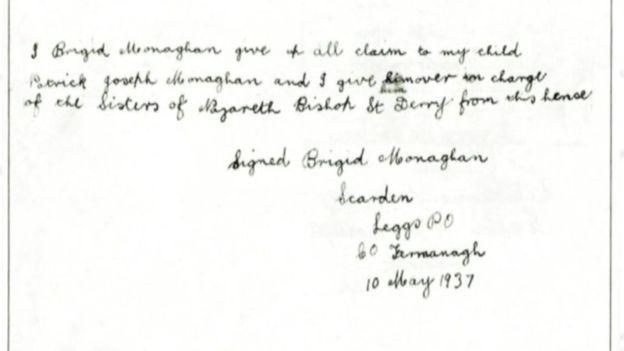 I Brigid Monaghan give up all claim to my child
Patrick Joseph Monaghan and I give him over in charge
of the Sisters of Nazareth Bishop St Derry from this hense
Signed Brigid Monaghan
Scarden
Leggs P O
CO Fermanagh
10 May 1937